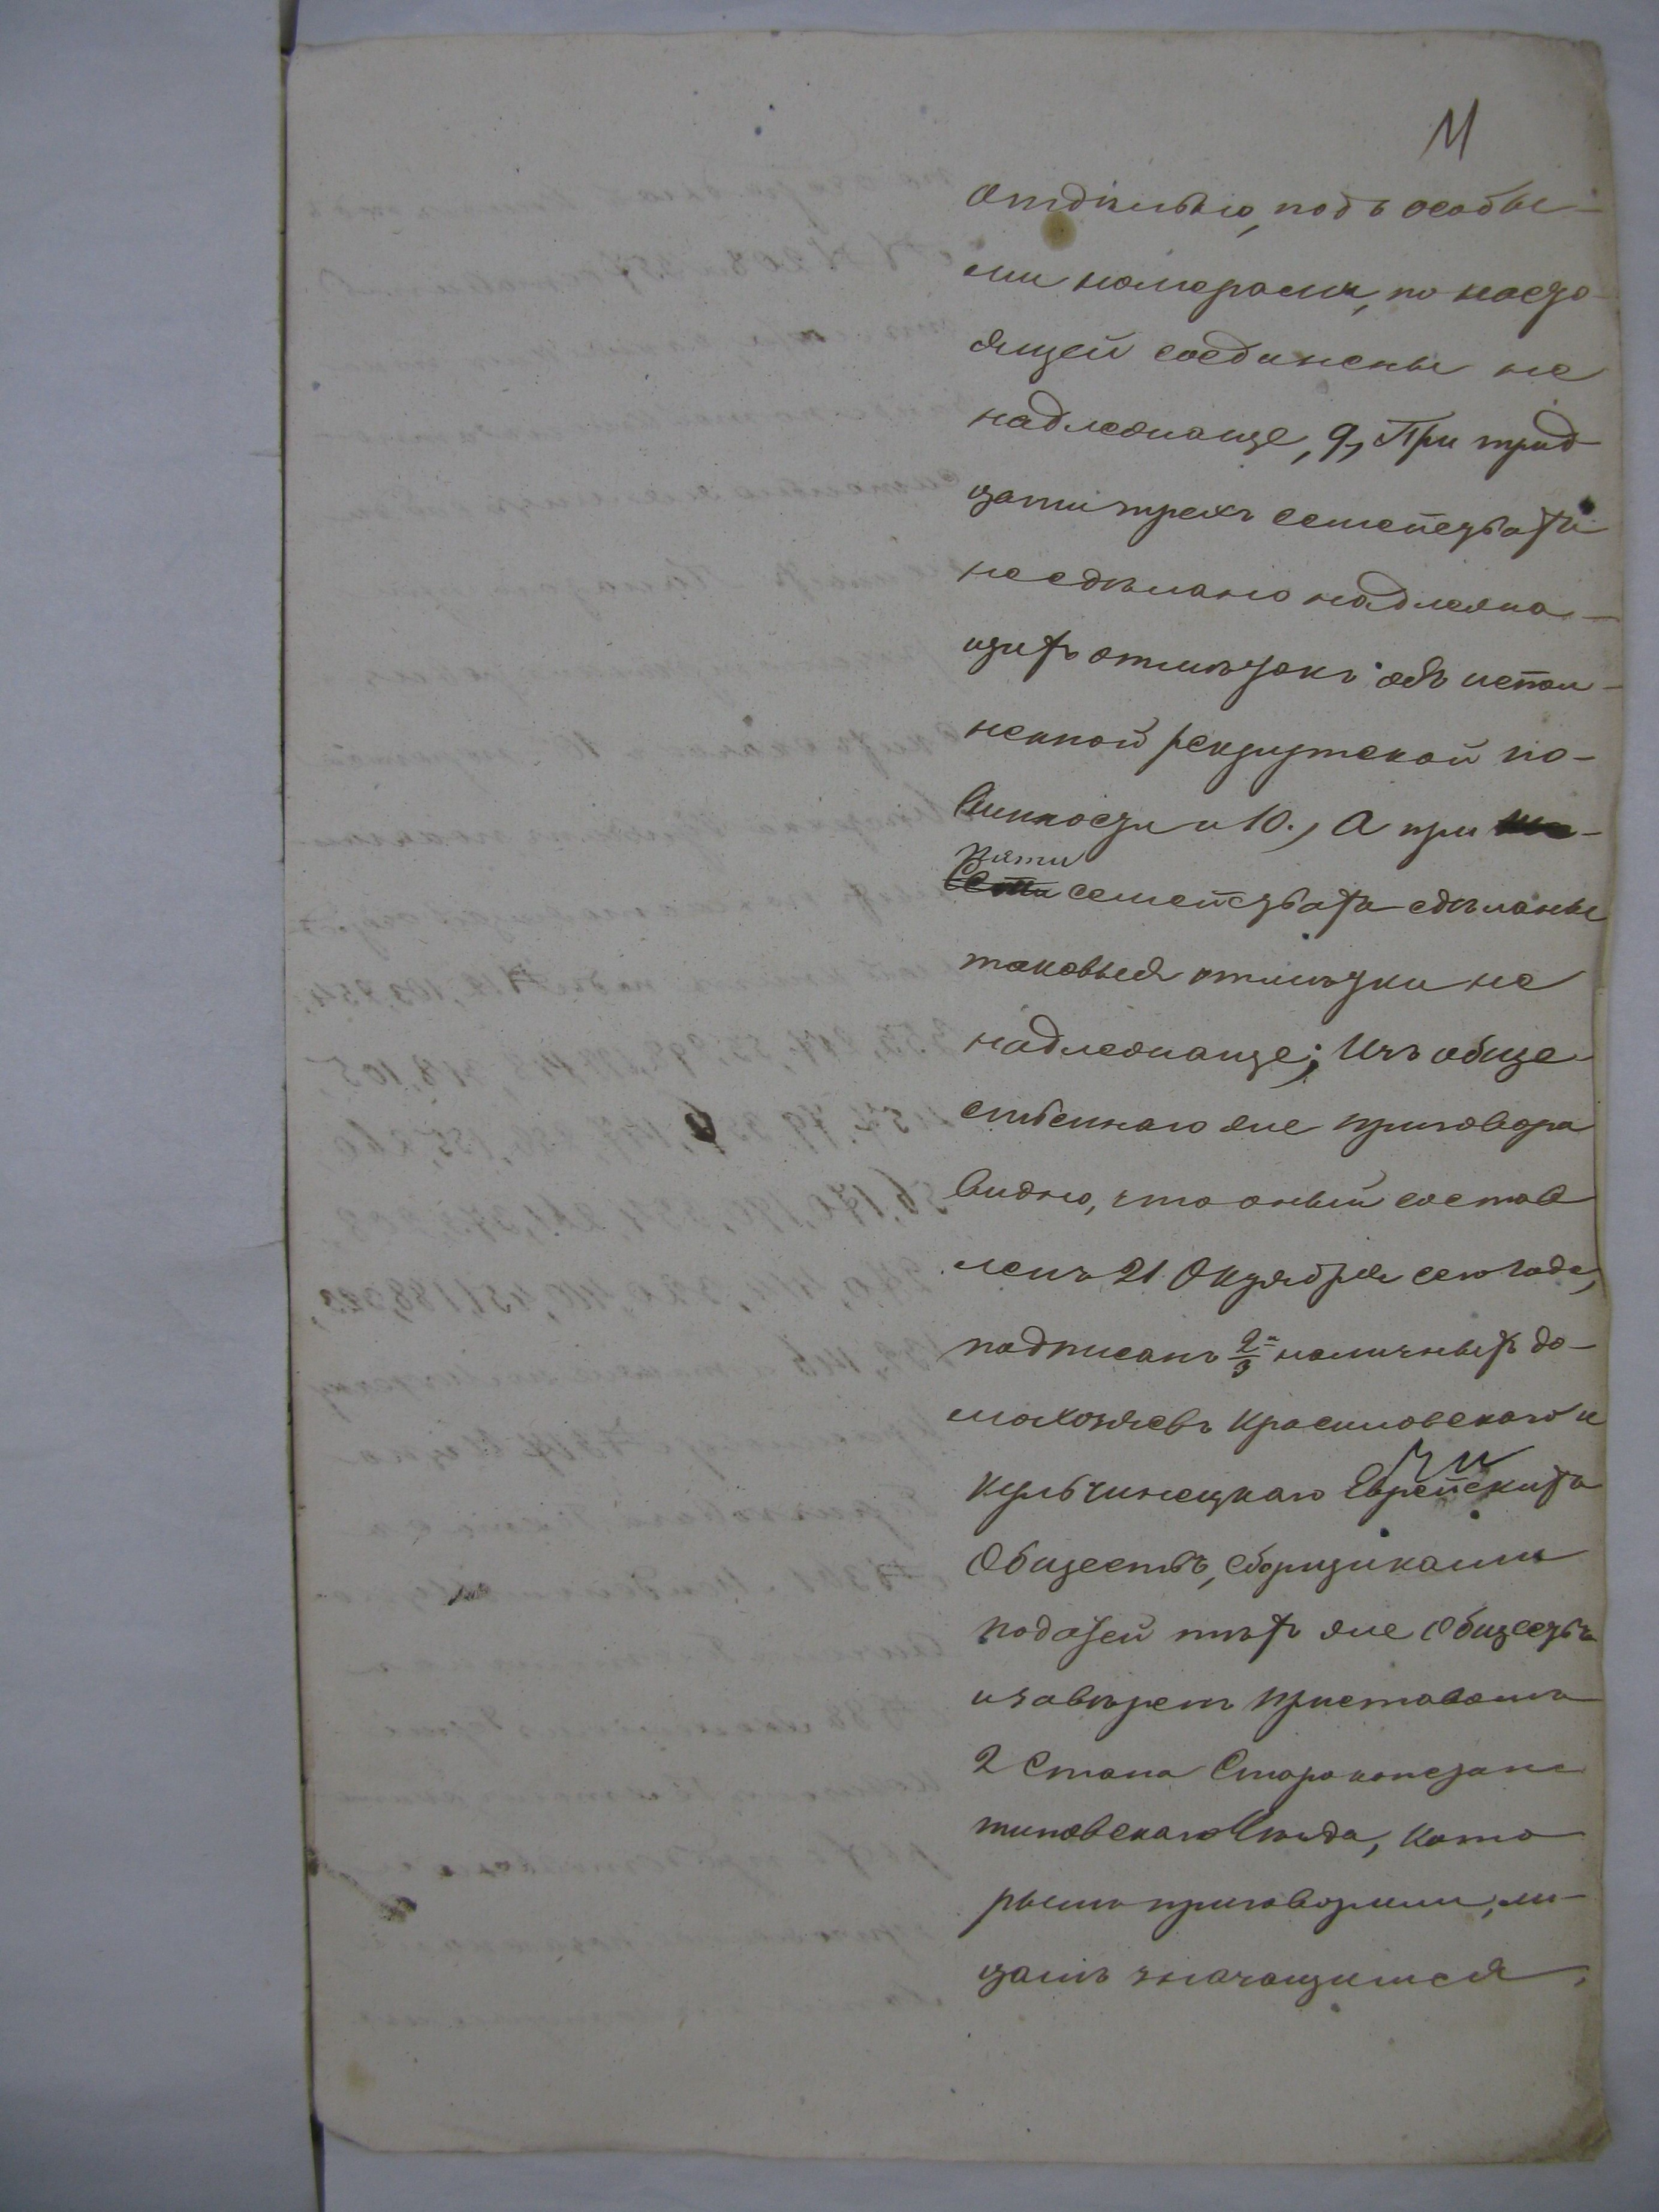 11
отдѣльно, подъ особы-
ми номерами, по насто-
ящей соединены не
надлежаще, 9, При трид-
цати трехъ семействахъ
не сдѣлано надлежа-
щихъ отмѣтокъ объ испол-
ненной рекрутской по-
винности и 10., А при
пяти
семействахъ сдѣланы
таковыя отмѣтки не
надлежаще; Изъ обще-
ственнаго же приговора
видно, что оный состав
ленъ 21 Октября сего года,
подписанъ 2/3 наличныхъ до-
мохозяевъ Красиловскаго и
Кульчинецкаго Еврейскихъ
Обществъ, сборщиками
податей тѣхъ же Обществъ
и завѣренъ Приставомъ
2 Стана Староконстан
тиновскаго Уѣзда, Кото
рымъ приговоромъ, ли-
цамъ значащимся